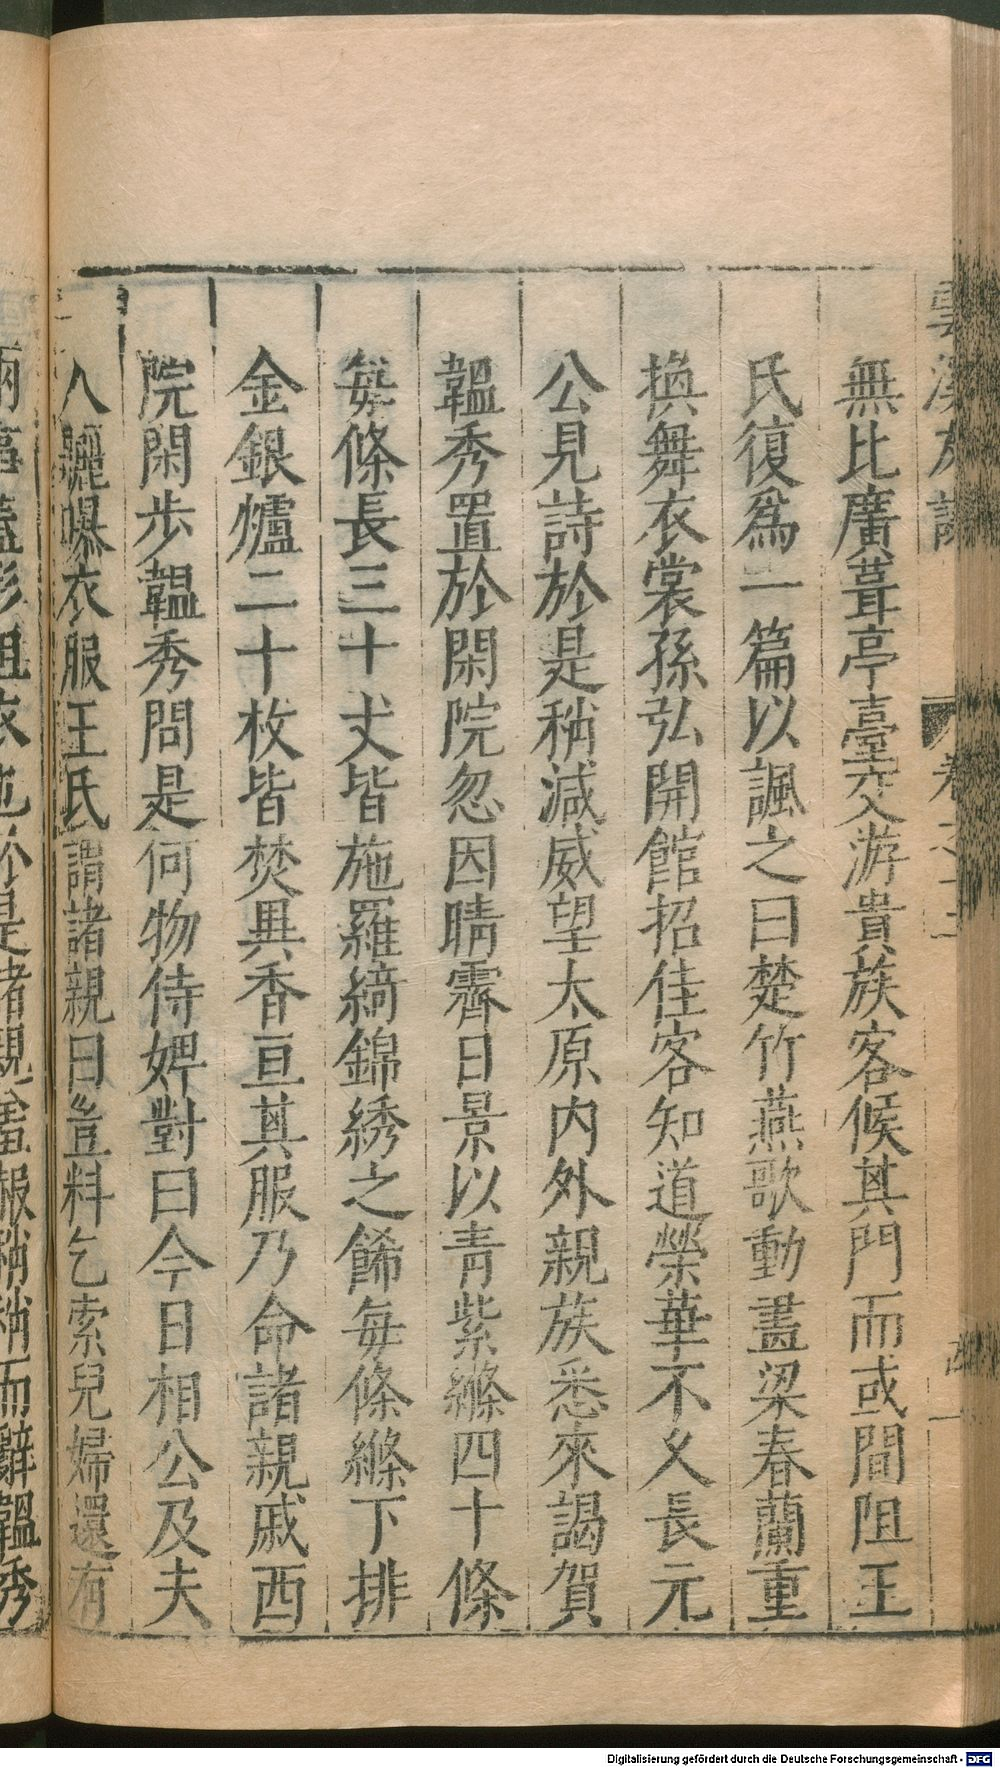 雲溪友議
卷之十三
無比廣葺亭臺交游貴族客候其門而或間阻王
氏復爲一篇以諷之曰楚竹燕歌動畫梁春蘭重
換舞衣裳孫弘開館招佳客知道榮華不久長元
公見詩於是稍減威望太原内外親族悉來謁賀
韞秀置於閑院忽因晴霽日景以青紫絛四十條
每條長三十丈皆施羅綺錦綉之餙每條絛下排
金銀爐二十枚皆焚異香亘其服乃命諸親戚西
院閑步韞秀問是何物侍婢對曰今日相公及夫
人曬曝衣服王氏謂諸親曰豈料乞索兒婦還有
兩事蓋形粗衣也於是諸親羞赧稍稍而辭韞秀
Digitalisierung gefördert durch die Deutsche Forschungsgemeinschaft - DFG